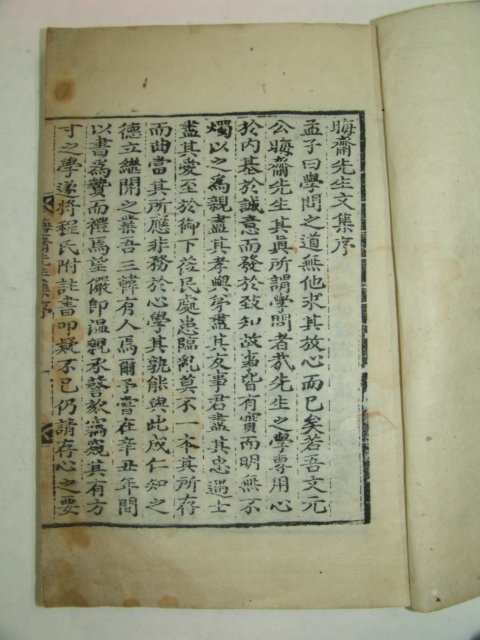 晦齋先生文集序
孟子曰學問之道無他求其放心而已矣若吾文元
公晦齋先生其眞所謂學問者哉先生之學專用心
於內基於誠意而發於致知故事皆有實而明無不
燭以之爲親盡其孝與弟盡其友事君盡其忠遇士
盡其愛至於御下莅民處患臨亂莫不一本其所存
而曲當其所應非務於心學其孰能與此成仁知之
德立繼開之業吾三韓有人焉爾予嘗在辛丑年間
以書爲贄而禮焉望儼卽溫親承謦欬竊窺其有方
寸之學遂將程氏附註書叩疑不已仍請存心之要
晦齋先生集序